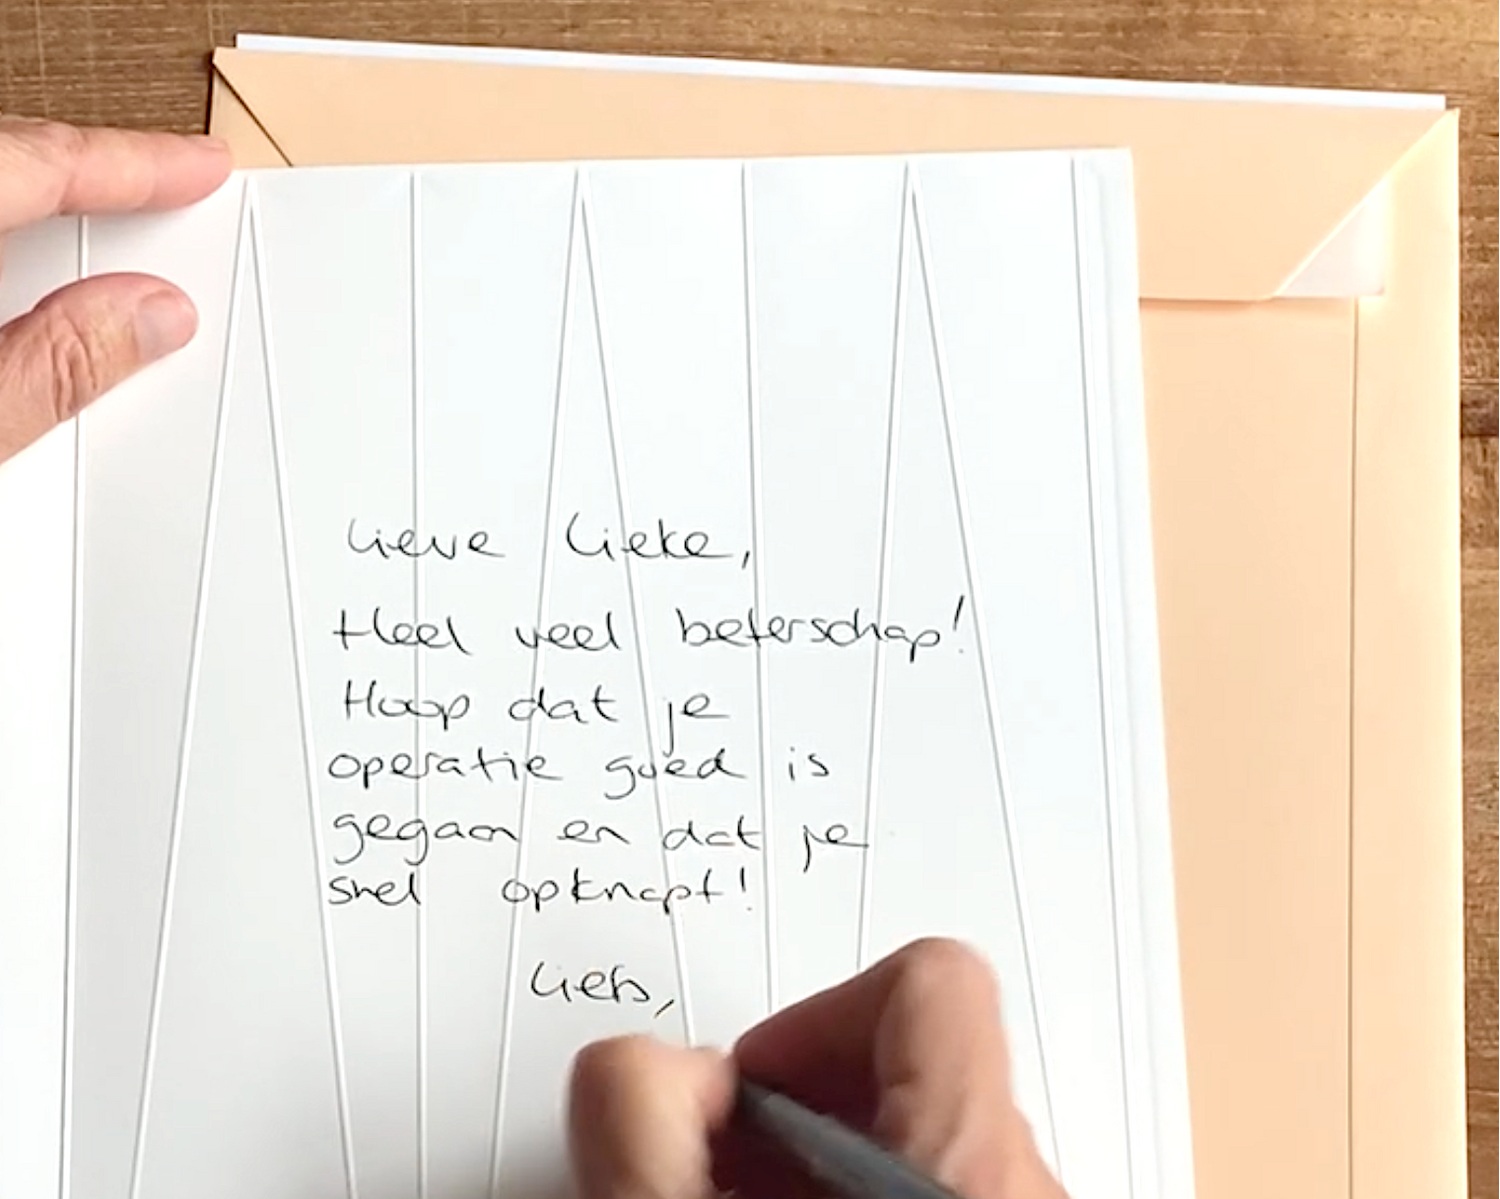 Lieve Lieke,
Heel veel beterschap!
Hoop dat je
operatie goed is
gegaan en dat je
snel opknapt!
Liefs,